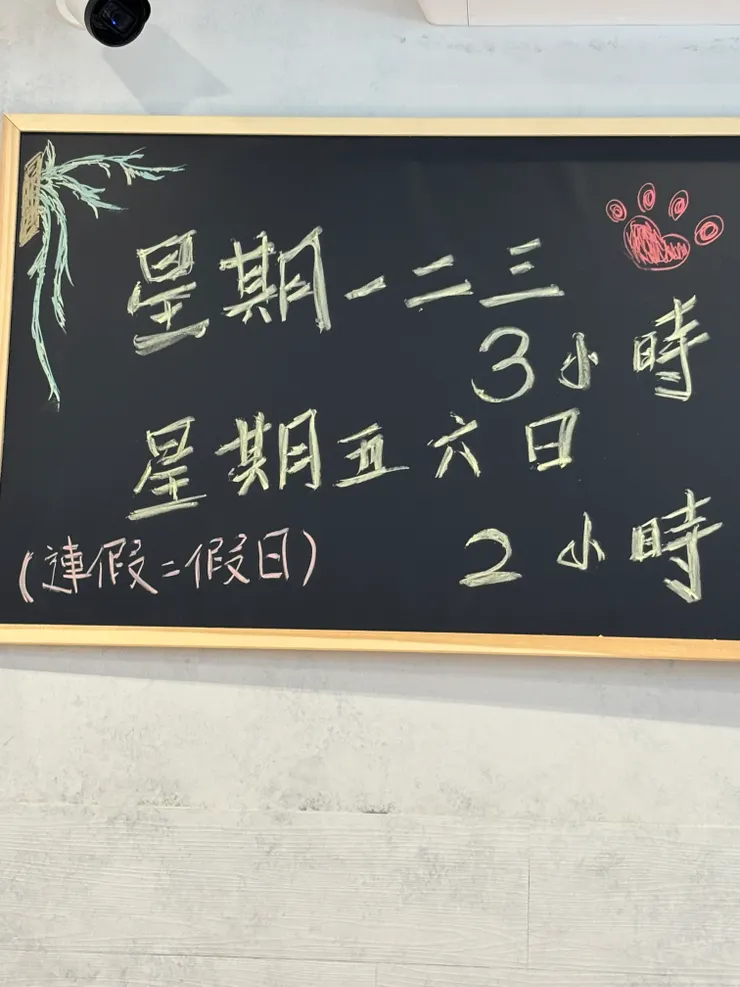 星期一二三
3小時
星期五六日
2小時
(連假=假日)